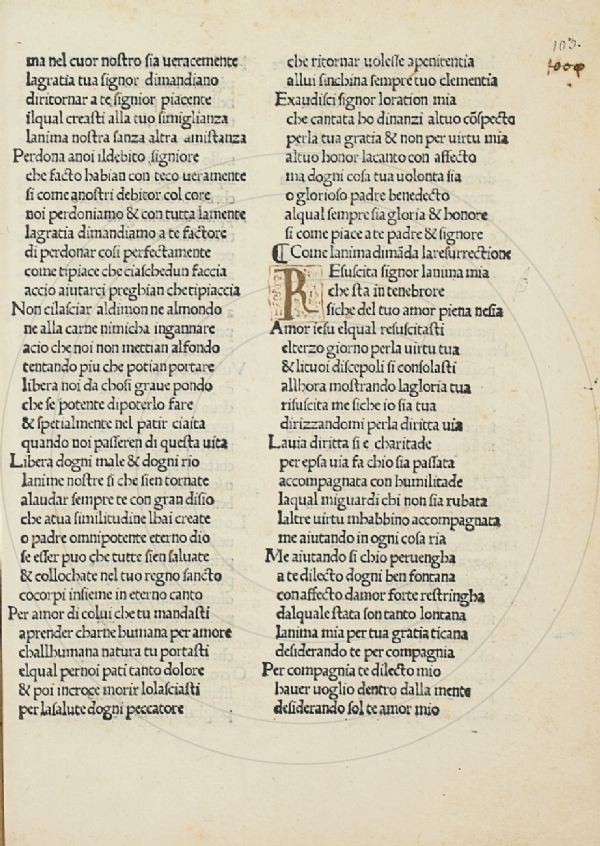 103.
1000
ma nel cuor nostro sia ueracemente
lagratia tua signor dimandiano
diritornar a te signior piacente
ilqual creasti alla tuo simiglianza
lanima nostra sanza altra amistanza
Perdona anoi ildebito signiore
che facto habian con teco ueramente
si come anostri debitor col core
noi perdoniamo & con tutta lamente
lagratia dimandiamo a te factore
di perdonar cosi perfectamente
come tipiace che ciaschedun faccia
accio aiutarci preghian che tipiaccia
Non cilasciar aldimon ne almondo
ne alla carne nimicha ingannare
acio che noi non mettian alfondo
tentando piu che potian portare
libera noi da chosi graue pondo
che se potente dipoterlo fare
& spetialmente nel patir ciaita
quando noi passeren di questa uita
Libera dogni male & dogni rio
lanime nostre si che sien tornate
alaudar sempre te con gran disio
che atua similitudine lhai create
o padre omnipotente eterno dio
se esser puo che tutte sien saluate
& collochate nel tuo regno sancto
cocorpi insieme in eterno canto
Per amor di colui che tu mandasti
aprender charne humana per amore
challhumana natura tu portasti
elqual pernoi pati tanto dolore
& poi incroce morir lolasciasti
per lasalute dogni peccatore
che ritornar uolesse apenitentia
allui sinchina sempre tuo clementia
Exaudisci signor loration mia
che cantata ho dinanzi altuo cõspecto
perla tua gratia & non per uirtu mia
altuo honor lacanto con affecto
ma dogni cosa tua uolonta sia
o glorioso padre benedecto
alqual sempre sia gloria & honore
si come piace a te padre & signore
¶ Come lanima dimãda laresurrectione
REsuscita signor lanima mia
che sta in tenebrore
siche del tuo amor piena nesia
Amor iesu elqual resuscitasti
elterzo giorno perla uirtu tua
& lituoi discepoli si consolasti
allhora mostrando lagloria tua
risuscita me siche io sia tua
dirizzandomi perla diritta uia
Lauia diritta si e charitade
per epsa uia fa chio sia passata
accompagnata con humilitade
laqual miguardi chi non sia rubata
laltre uirtu mhabbino accompagnata
me aiutando in ogni cosa ria
Me aiutando si chio peruengha
a te dilecto dogni ben fontana
con affecto damor forte restringha
dalquale stata son tanto lontana
lanima mia per tua gratia ticana
desiderando te per compagnia
Per compagnia te dilecto mio
hauer uoglio dentro dalla mente
desiderando sol te amor mio